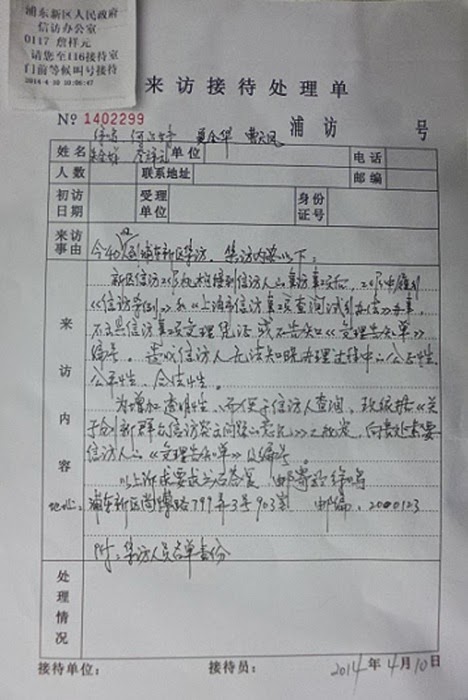 浦东新区人民政府
信访办公室
0117 詹样元
请您至116接待室
门前等候叫号接待
2014-4-10 10:06:47
来访接待处理单
№ 1402299 浦访 号
姓名 单位 电话
人数 联系地址 邮编
初访日期 受理单位 身份证号
来访事由 今40人到浦东新区集访，集访内容以下：
来访内容
新区信访工作机构接到信访人的集访事项后，
《信访条例》和《上海市信访事项查询试行办法》办事，
不出具信访事项受理凭证，或不告知《受理告知单》
编号。造成信访人无法知晓办理过程中的公开性、
公平性、合法性。
为增加透明性、而便于信访人查询，现依据《关
于创新群众信访突出问题的意见》之规定，向贵处索要
信访人的《受理告知单》及编号。
以上诉求要求书面答复 邮寄给徐鸣
地址：浦东新区尚博路797弄3号903室 邮编：2000123
附：集访人员名单壹份
处理情况
接待单位： 接待员： 2014年4月10日